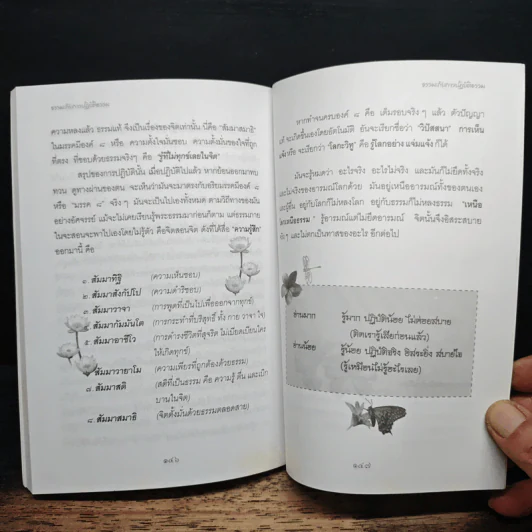 ธรรมะกับการปฏิบัติธรรม
ความหลงแล้ว ธรรมแท้ จึงเป็นเรื่องของจิตเท่านั้น นี่คือ "สัมมาสมาธิ"
ในมรรคมีองค์ ๘ หรือ ความตั้งใจมั่นชอบ ความตั้งมั่นของใจที่ถูก
ที่ตรง ที่ชอบด้วยธรรมจริงๆ คือ "รู้ที่ไม่ทุกข์เลยในจิต"
สรุปของการปฏิบัตินั้น เมื่อปฏิบัติไปแล้ว หากย้อนออกมาทบ
ทวน ดูทางผ่านของตน จะเห็นว่ามันจะมาตรงกับอริยมรรคมีองค์ ๘
หรือ "มรรค ๘" จริงๆ มันจะเป็นไปเองทั้งหมด ตามวิถีทางของมัน
อย่างอัศจรรย์ แม้จะไม่เคยเรียนรู้พระธรรมมาก่อนก็ตาม แต่ธรรมภาย
ในจะสอนจะพาไปเองโดยไม่รู้ตัว คือจิตสอนจิต ดังที่ได้สื่อ "ความรู้สึก"
ออกมานี้ คือ
๑. สัมมาทิฐิ (ความเห็นชอบ)
๒. สัมมาสังกัปโป (ความดำริชอบ)
๓. สัมมาวาจา (การพูดที่เป็นไปเพื่อออกจากทุกข์)
๔. สัมมากัมมันโต (การกระทำที่บริสุทธิ์ ทั้ง กาย วาจา ใจ)
๕. สัมมาอาชีโว (การดำรงชีวิตที่สุจริต ไม่เบียดเบียนใคร
ให้เกิดทุกข์)
สัมมาวายาโม (ความเพียรที่ถูกต้องด้วยธรรม)
๗. สัมมาสติ (สติที่เป็นธรรม คือ ความรู้ ตื่น และเบิก
บานในจิต)
๘. สัมมาสมาธิ (จิตตั้งมั่นด้วยธรรมตลอดสาย)
๑๔๖
ธรรมะกับการปฏิบัติธรรม
หากทำจนครบองค์ ๘ คือ เต็มรอบจริงๆ แล้ว ตัวปัญญา
จะเกิดขึ้นเองโดยอัตโนมัติ อันจะเรียกว่า "วิปัสสนา" การเห็น
หรือ จะเรียกว่า "โลกะวิทู" คือ รู้โลกอย่าง แจ่มแจ้ง ก็ได้
มันจะรู้หมดว่า อะไรจริง อะไรไม่จริง และมันก็ไม่ยึดทั้งจริง
และไม่จริงของอารมณ์โลกด้วย มันอยู่เหนืออารมณ์ทั้งของตนเอง
และผู้อื่น อยู่กับโลกก็ไม่หลงโลก อยู่กับธรรมก็ไม่หลงธรรม "เหนือ
โลกเหนือธรรม" รู้อารมณ์แต่ไม่ยึดอารมณ์ จิตนั้นจึงอิสระสบาย
จริงๆ และไม่ตกเป็นทาสของอะไร อีกต่อไป
อ่านมาก รู้มาก ปฏิบัติน้อย ไม่ค่อยสบาย
(คิดเรารู้เสียก่อนแล้ว)
อ่านน้อย รู้น้อย ปฏิบัติจริง ยิ่งระยิ่ง สบายใจ
(รู้เหมือนไม่รู้อะไรเลย)
๑๔๗